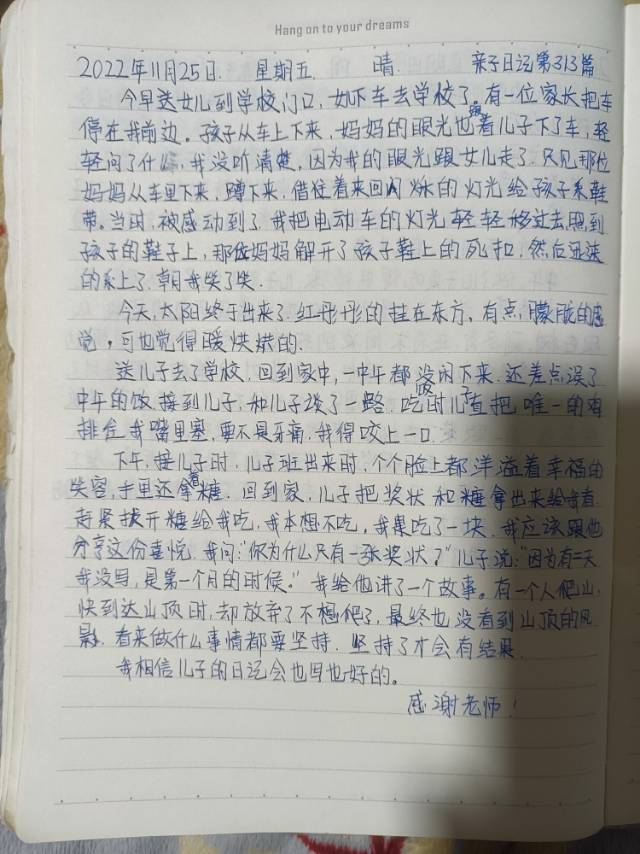 Hang on to your dreams
2022年11月25日. 星期五. 晴. 亲子日记第313篇
今早送女儿到学校门口,女儿下车去学校了。有一位家长把车
停在我前边。孩子从车上下来,妈妈的眼光也跟着儿子下了车,轻
轻问了什么,我没听清楚,因为我的眼光跟女儿走了.只见那位
妈妈从车里下来,蹲下来,借住着来回闪烁的灯光给孩子系鞋
带。当时,被感动到了.我把电动车的灯光轻轻移过去,照到
孩子的鞋子上,那位妈妈解开了孩子鞋上的死扣,然后迅速
的系上了.朝我笑了笑.
今天,太阳终于出来了.红彤彤的挂在东方,有点朦胧的感
觉,可也觉得暖烘烘的.
送儿子去了学校,回到家中,一中午都没闲下来.还差点误了
中午的饭.接到儿子,和儿子谈了一路.吃饭时儿子直把唯一的鸡
排往我嘴里塞,要不是牙痛,我得咬上一口.
下午,接儿子时,儿子班出来时,个个脸上都洋溢着幸福的
笑容,手里还拿着糖.回到家,儿子把奖状和糖拿出来给我看.
赶紧拔开糖给我吃,我本想不吃,我是吃了一块.我应该跟他
分享这份喜悦.我问:"你为什么只有一张奖状?"儿子说:"因为有一天
我没写,是第一个月的时候。"我给他讲了一个故事。有一个人爬山,
快到达山顶时,却放弃了不想爬了,最终也没看到山顶的风
景.看来做什么事情都要坚持.坚持了才会有结果.
我相信儿子的日记会也写也好的。
感谢老师!